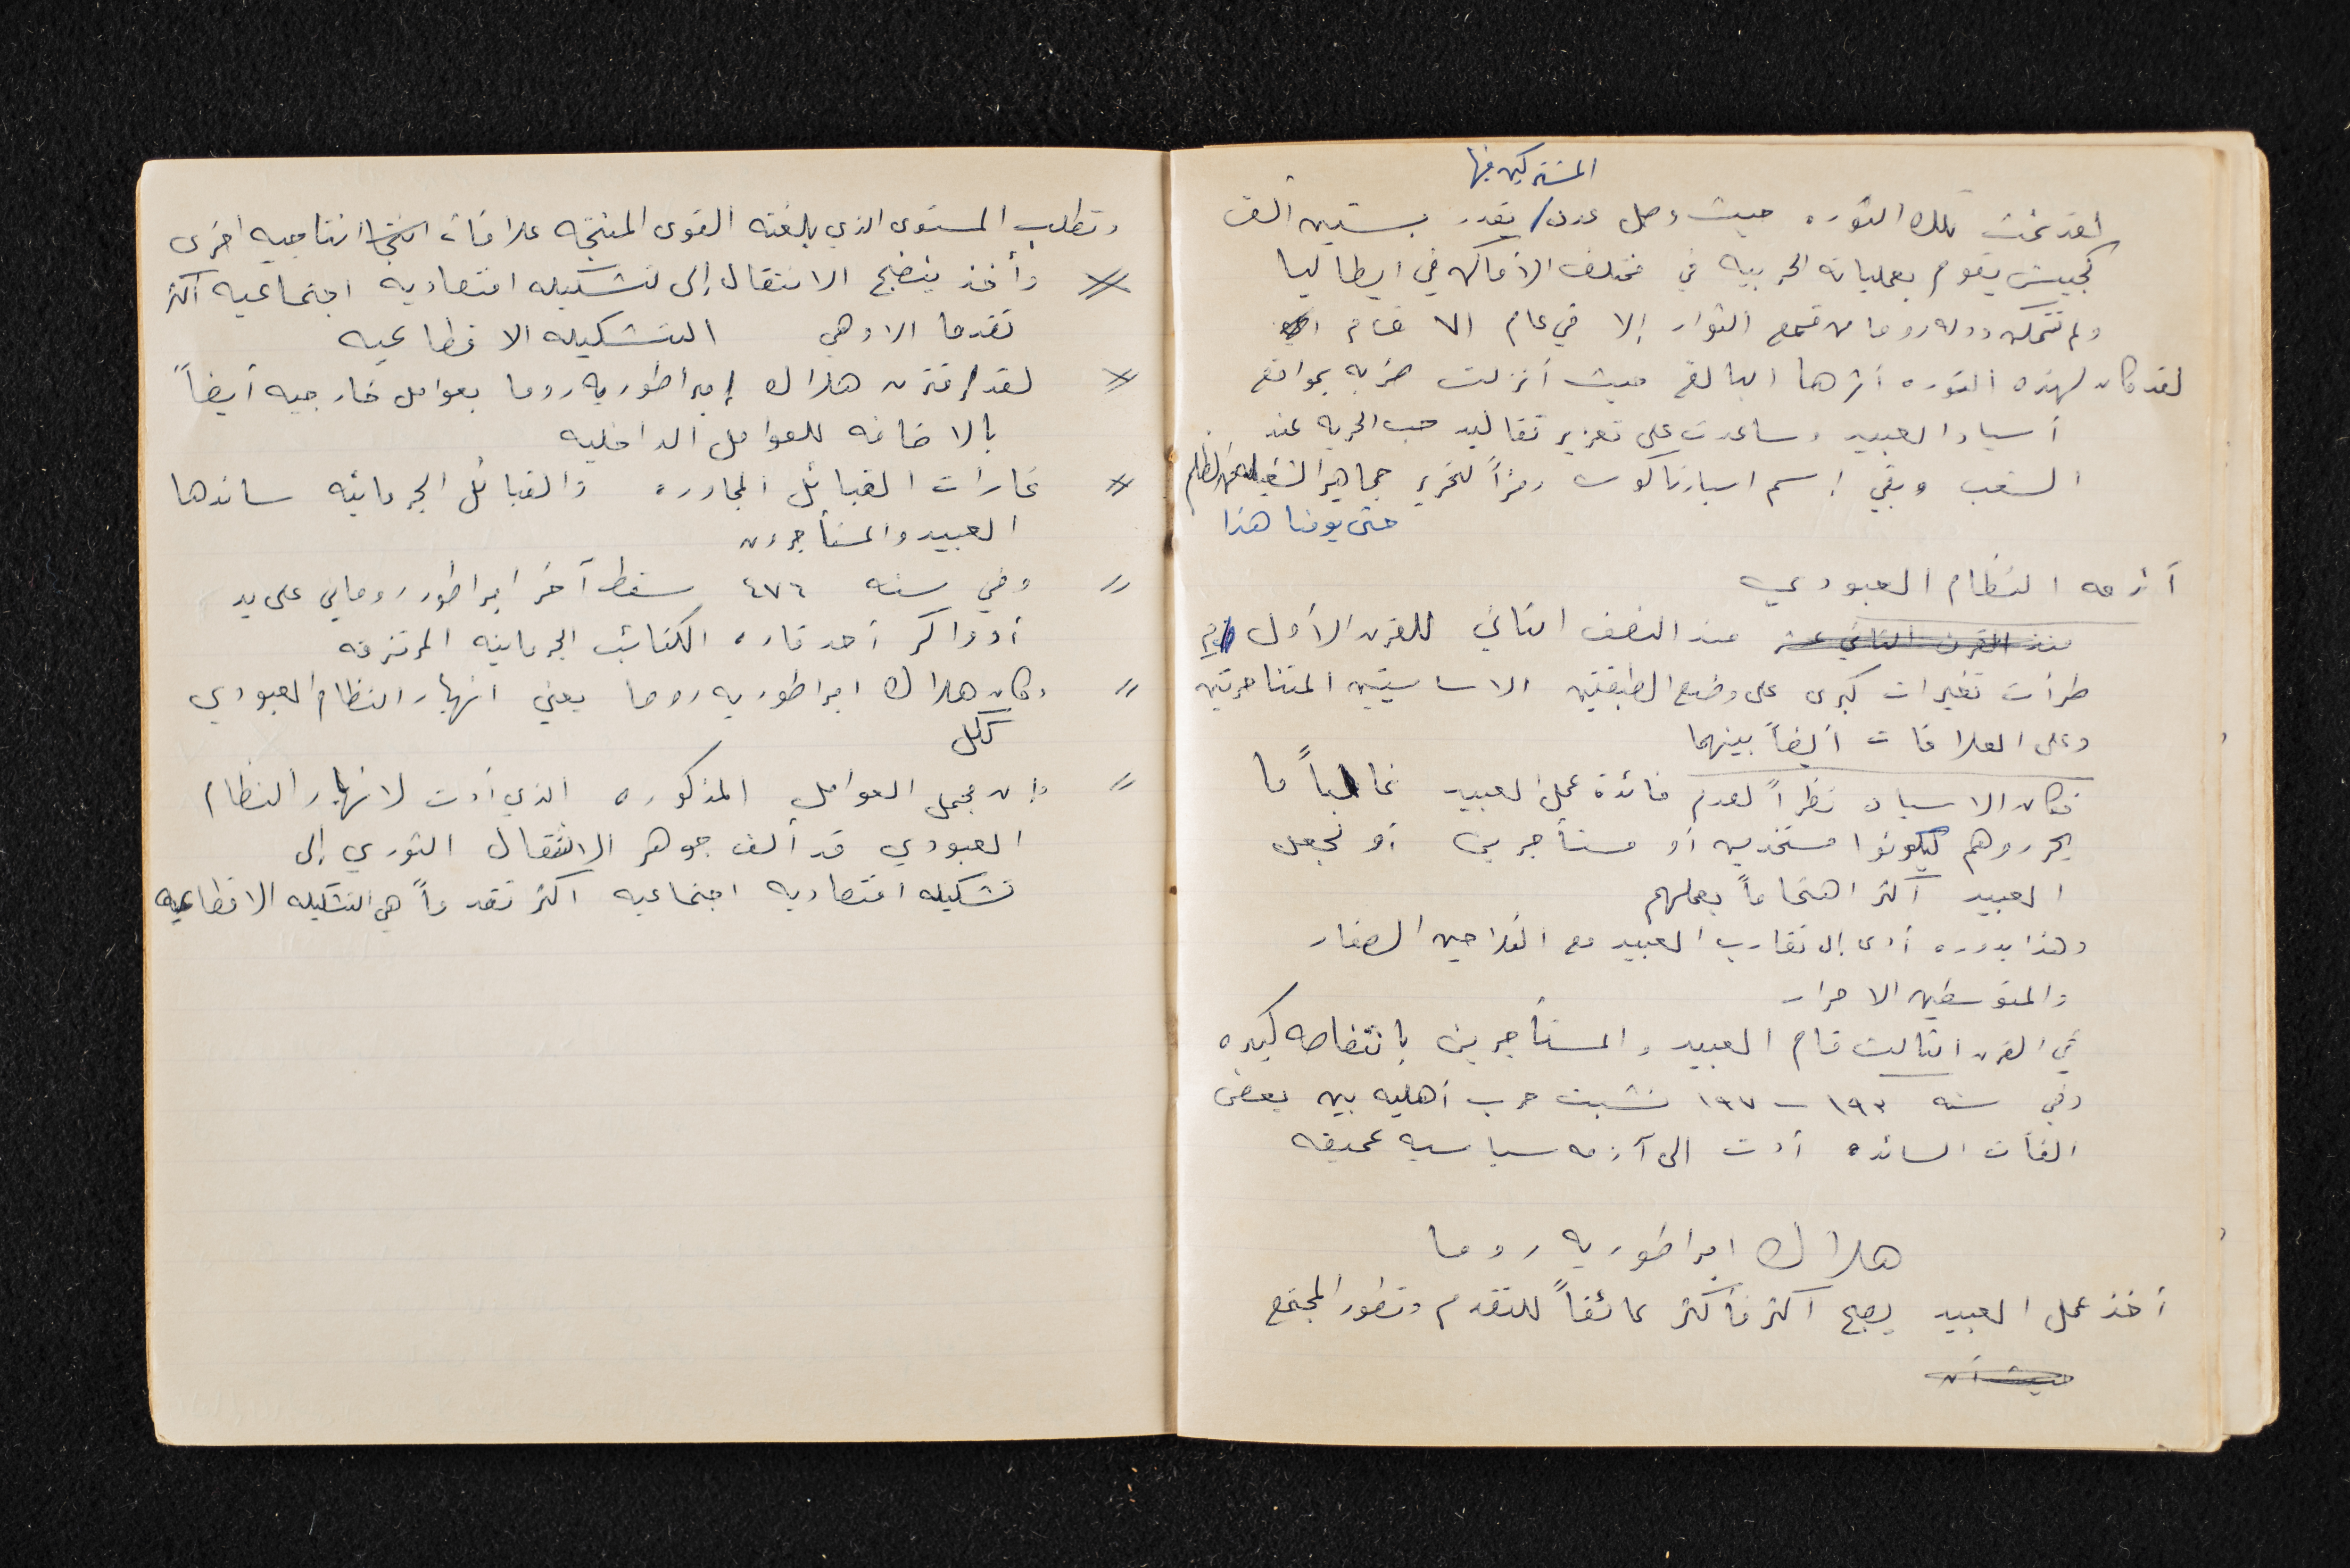 المشتركين فيها
لقد نمت تلك الثوره حيث وصل عدد/ يقدر بستين الف
كجيش يقوم بعملياته الحربيه في مختلف الاماكن في ايطاليا
ولم تتمكن دوله روما من قمع الثوار إلا في عام ٧١ ق م
لقد كان لهذه الثوره أثرها البالغ حيث أنزلت ضربه بمواقع
أسياد العبيد وساعدت على تعزيز تقاليد حب الحريه عند
الشعب وبقي إسم اسبارتاكوس رمزاً لتحرير جماهير الشغيله من الظلم
حتى يومنا هذا
أزمه النظام العبودي
منذ القرن الثاني عشر منذ النصف الثاني للقرن الأول م
طرأت تغيرات كبرى على وضع الطبقتين الاساسيتين المتناحرتين
وعلى العلاقات أيضاً بينهما
فكان الاسياد نظراً لعدم فائدة عمل العبيد غالباً ما
يحرروهم ليكونوا مستخدمين أو مستأجرين أو نجعل
العبيد أكثر اهتماماً بعملهم
وهذا بدوره أدى إلى تقارب العبيد مع الفلاحين الصغار
والمتوسطين الاحرار
في القرن الثالث قام العبيد والمستأجرين بانتفاضه كبيره
وفي سنه ١٩٣ - ١٩٧ نشبت حرب أهليه بين بعض
الفئات السائده أدت الى أزمه سياسيه عميقه
هلاك امبراطوريه روما
أخذ عمل العبيد يصبح أكثر فأكثر عائقاً للتقدم وتطور المجتمع
حيث أن
وتطلب المستوى الذي بلغته القوى المنتجه علاقات انتاجيه اخرى
وأخذ ينضج الانتقال إلى تشكيله اقتصاديه اجتماعيه أكثر
تقدما الا وهي التشكيله الاقطاعيه
لقد إقترن هلاك إمبراطوريه روما بعوامل خارجيه أيضاً
بالاضافه للعوامل الداخليه
غارات القبائل المجاوره والقبائل الجرمانيه ساندها
العبيد والمستأجرون
" وفي سنه ٤٧٦ سقط آخر امبراطور روماني على يد
أدواكر أحد قاده الكتائب الجرمانيه المرتزقه
" وكان هلاك امبراطوريه روما يعني انهيار النظام العبودي
ككل
" وإن مجمل العوامل المذكوره الذي أدت لانهيار النظام
العبودي قد ألف جوهر الانتقال الثوري إلى
تشكيله اقتصاديه اجتماعيه اكثر تقدماً هي التشكيله الاقطاعيه